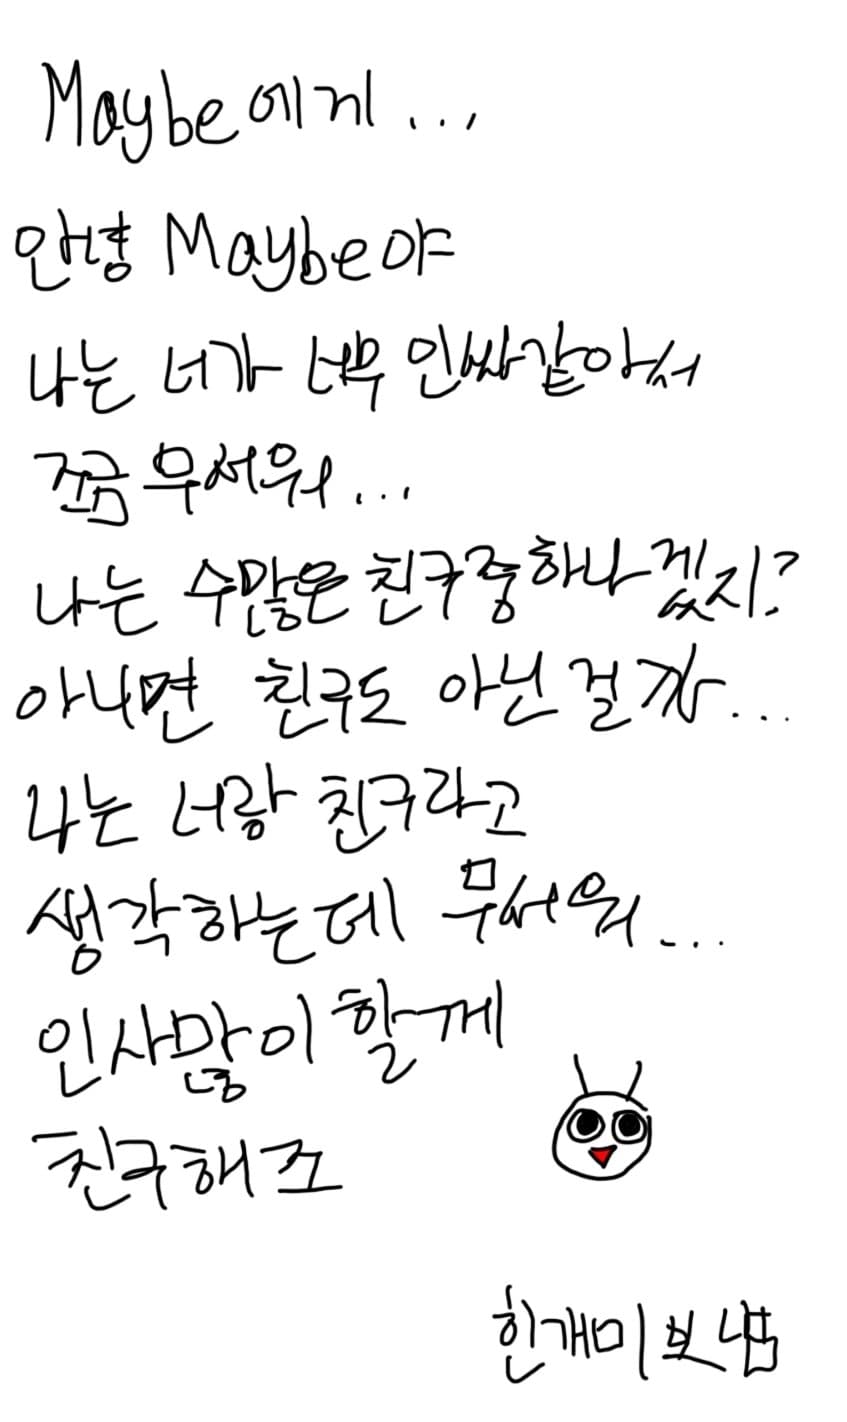 Maybe에게...
안녕 Maybe야
나는 너가 너무 인싸같아서
쪼금 무서워...
나는 수많은 친구중 하나겠지?
아니면 친구도 아닌걸까...
나는 너랑 친구라고
생각하는데 무서워...
인사많이 할께
친구해조
한개미 보냄